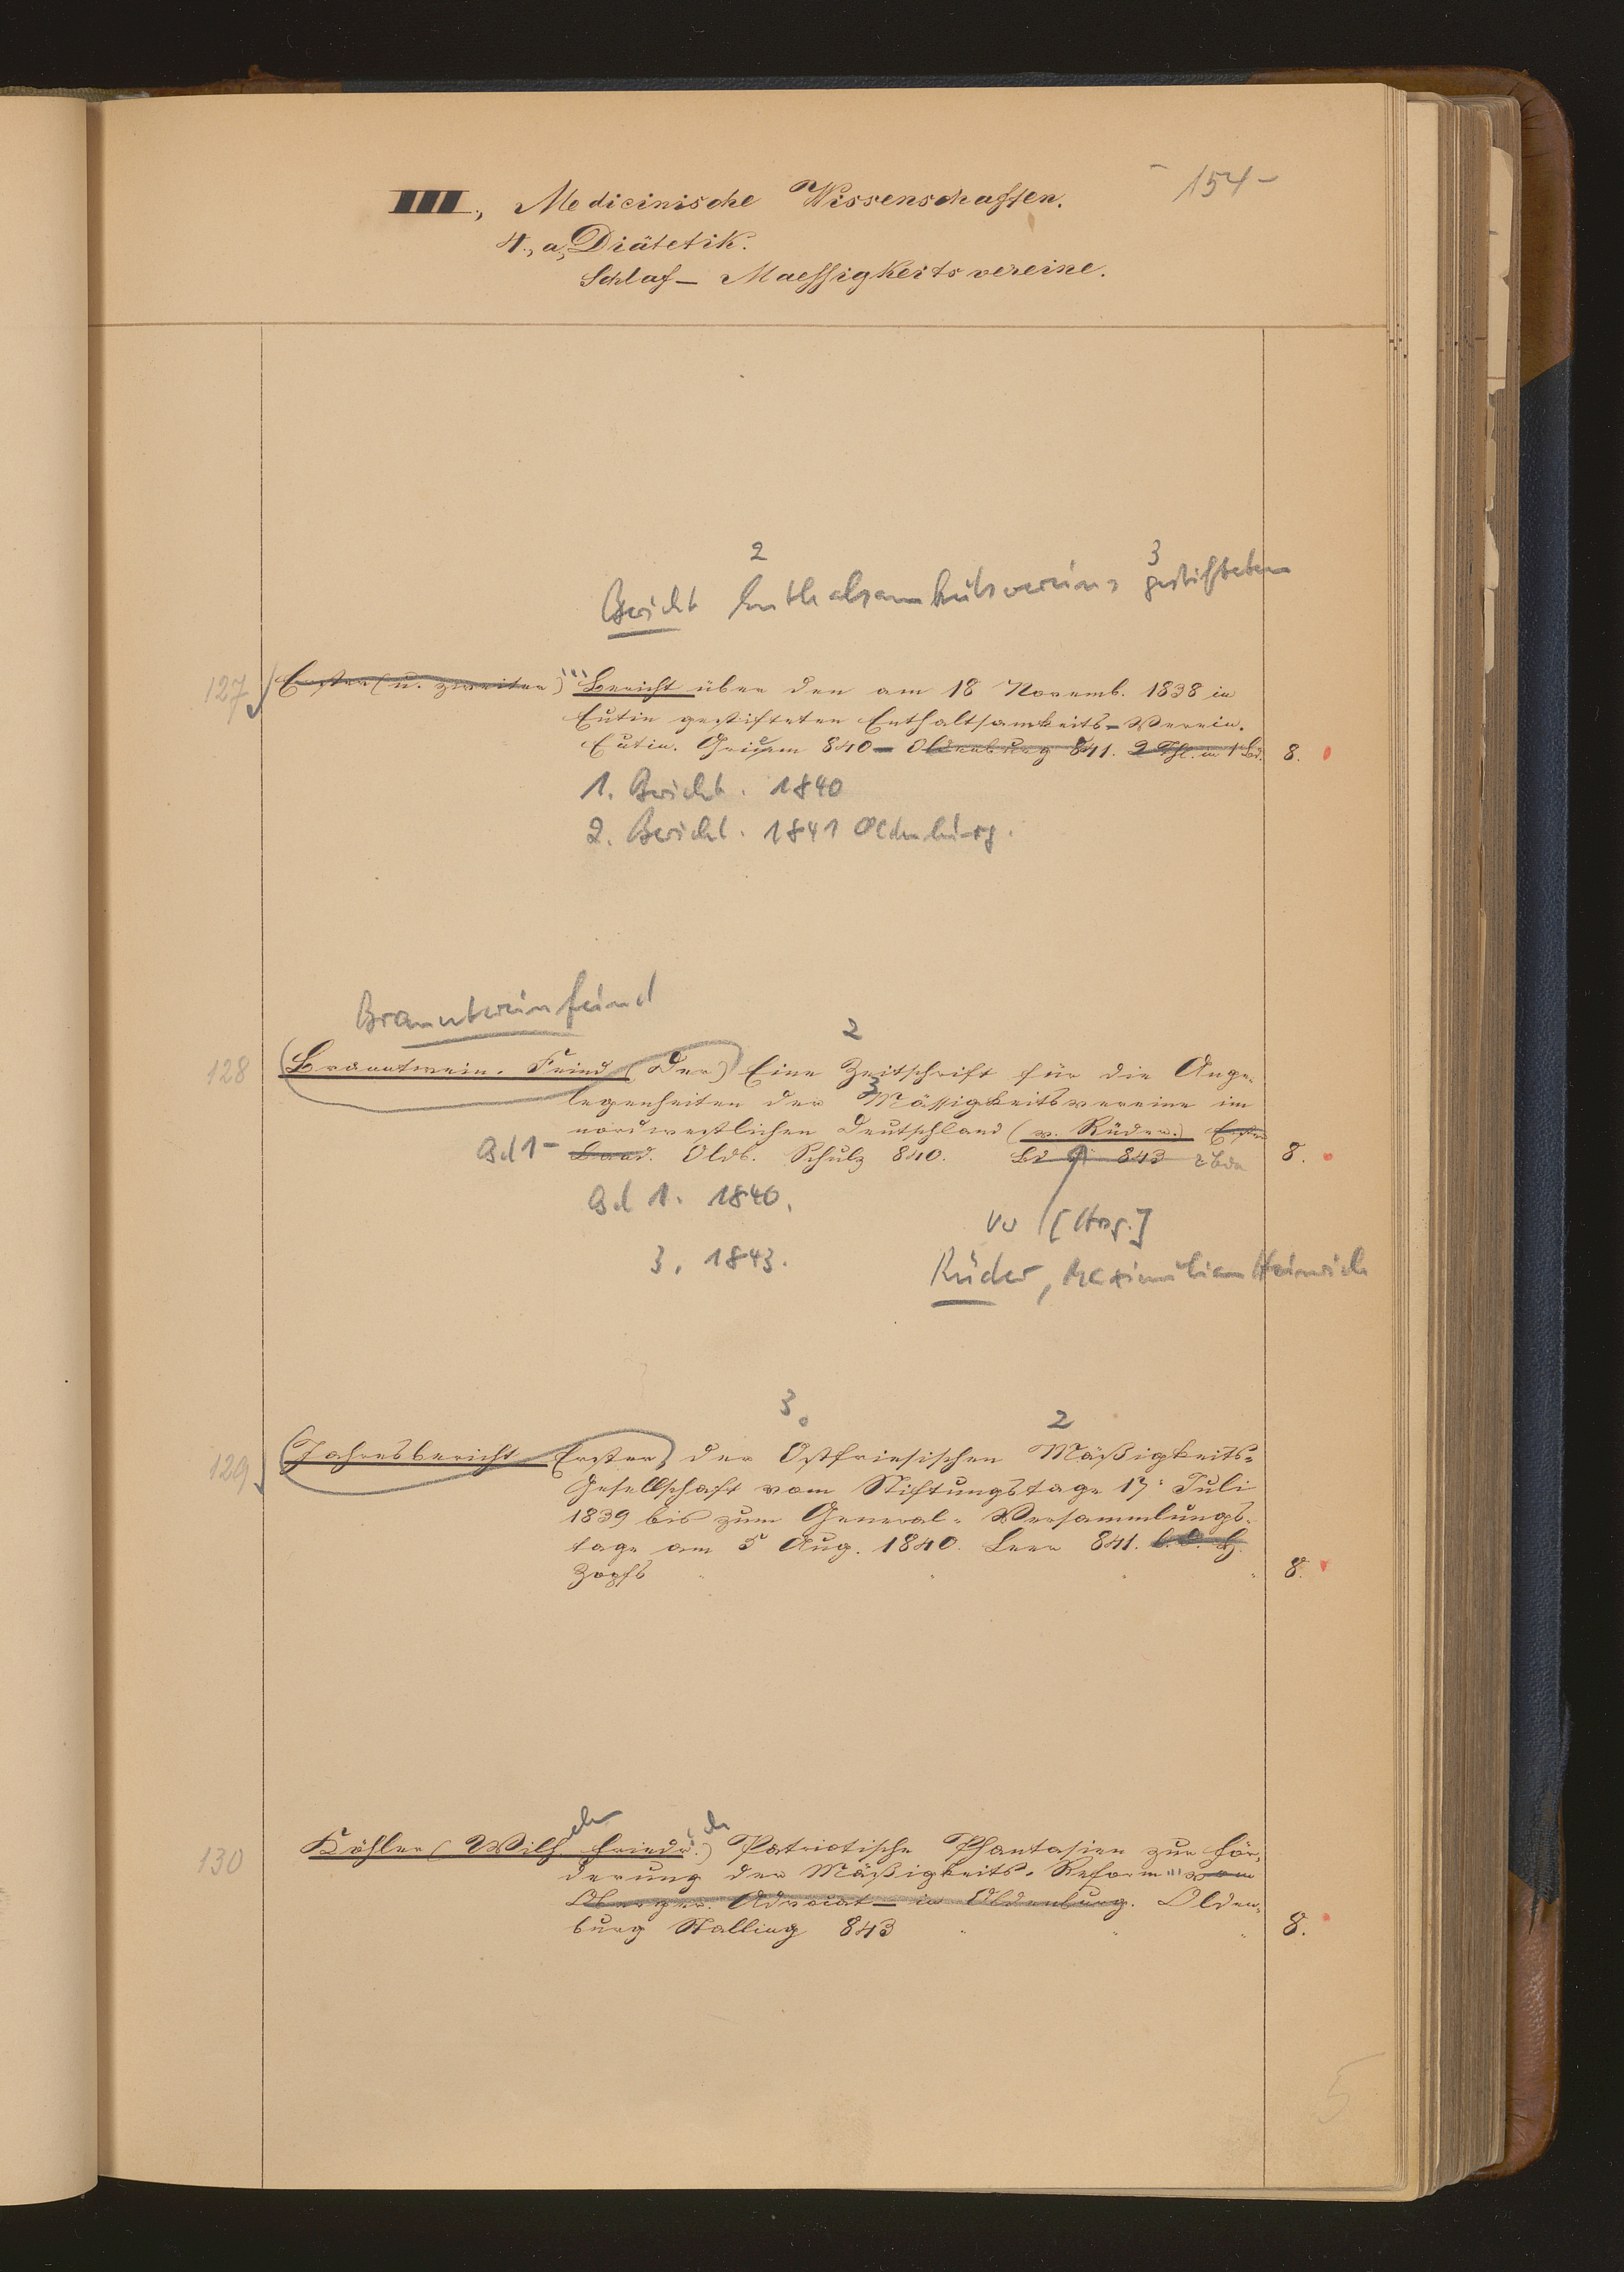 - 154 -
III., Medicinische Wissenschaften.
4., a, Diätetik.
Schlaf - Maessigkeitsvereine.
2 3
Bericht Enthaltsamkeitsvereins gestifteten
127 Erster (u. zweiter) Bericht über den am 18 Novemb. 1838 in
Eutin gestifteten Enthaltsamkeits-Verein.
Eutin. 840 - Oldenburg 841. 2 Thl. in 1 Bd. 8.
1. Bericht. 1840
2. Bericht. 1841 Oldenburg.
Branntweinfeind
2
128 (Branntwein-Feind (Der) Eine Zeitschrift für die Ange-
3
legenheiten der Mässigkeitsvereine im
nordwestlichen Deutschland (v. Rüder.) Erster
Bd 1- Band. Oldb. Schulz 840. Bd 843 2 Bde 8.
Bd 1. 1840.
Vw [Hrsg.]
3. 1843.
Rüder, Maximilian Heinrich
3. 2
129 (Jahresbericht Erster) der Ostfriesischen Mäßigkeits-
Gesellschaft vom Stiftungstage 17. Juli
1839 bis zum General-Versammlungs-
tage am 5 Aug. 1840. Leer 841.
Zopfs 8.
130 Köhler (Wilhelm Friedrich) Patriotische Phantasien zur För-
derung der Mäßigkeits-Reform vom
Oberger. Advocat - in Oldenburg. Olden-
burg Stalling 843 8.
5